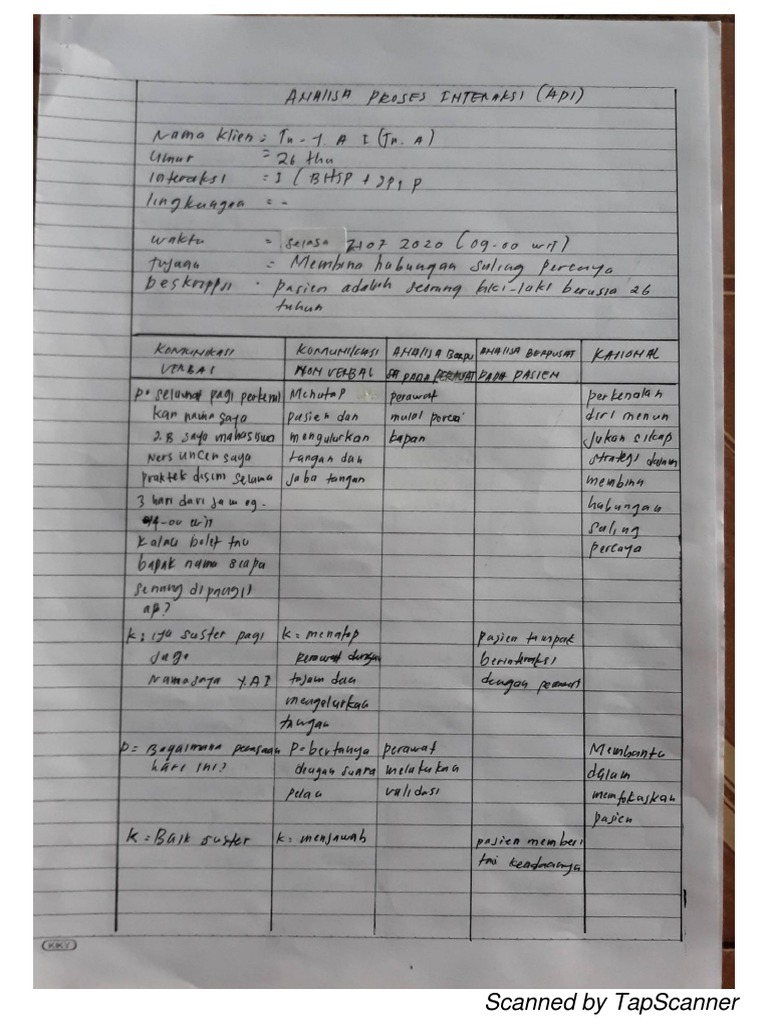 ANALISA PROSES INTERAKSI (API)
Nama Klien = Tn. Y. A I (Tn. A)
Umur = 26 thn
Interaksi = I (BHSP +
lingkungan = -
waktu = selasa 21 07 2020 (09.00 wit)
tujuan = Membina hubungan saling percaya
Deskripsi . pasien adalah seorang laki-laki berusia 26
tahun
KOMUNIKASI KOMUNIKASI ANALISA Berpu ANALISA BERPUSAT RASIONAL
VERBAL NON VERBAL SA PADA PERAWAT PADA PASIEN
P= selamat pagi perkenal Menatap perawat perkenalan
kan nama saya pasien dan mulai percai diri menun
Z.B saya mahasiswa mengulurkan kapan jukan sikap
Ners uncen saya tangan dan strategi dalam
praktek disini selama jaba tangan membina
3 hari dari jam 09- hubungan
14-00 wit saling
kalau bolet tau percaya
bapak nama siapa
senang dipanggil
ap?
k: iya suster pagi k= menatap pasien tampak
juga perawat dengan berinteraksi
Nama saya Y.A I tajam dan dengan perawat
mengelurkan
tangan
P= Bagaimana perasaan P= bertanya perawat Membantu
hari ini? dengan suara melakukan dalam
pelan validasi memfokaskan
pasien
k= Baik suster k= menjawab pasien memberi
tau keadaanya
KIKY
Scanned by TapScanner